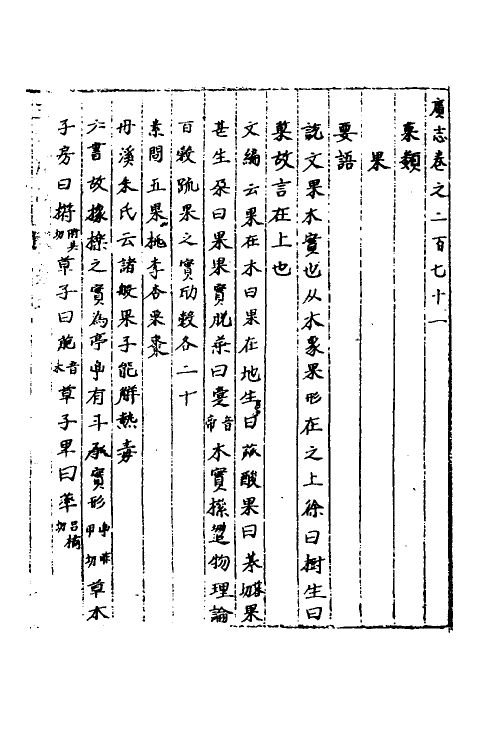 廣志卷之二百七十一
果類
果
要語
說文果木實也从木象果形在之上徐曰樹生曰
菓故言在上也
文編云果在木曰果在地生曰蓏酸果曰果
甚生朵曰果果實脫葉曰音帝木實物理論
百穀疏果之實助穀各二十
素問五果桃李杏栗棗
丹溪朱氏云諸般果子能解熱毒
六書故橡櫟之實為亭中有斗承實形切草木
子房曰柎切草子曰音草子皁曰切